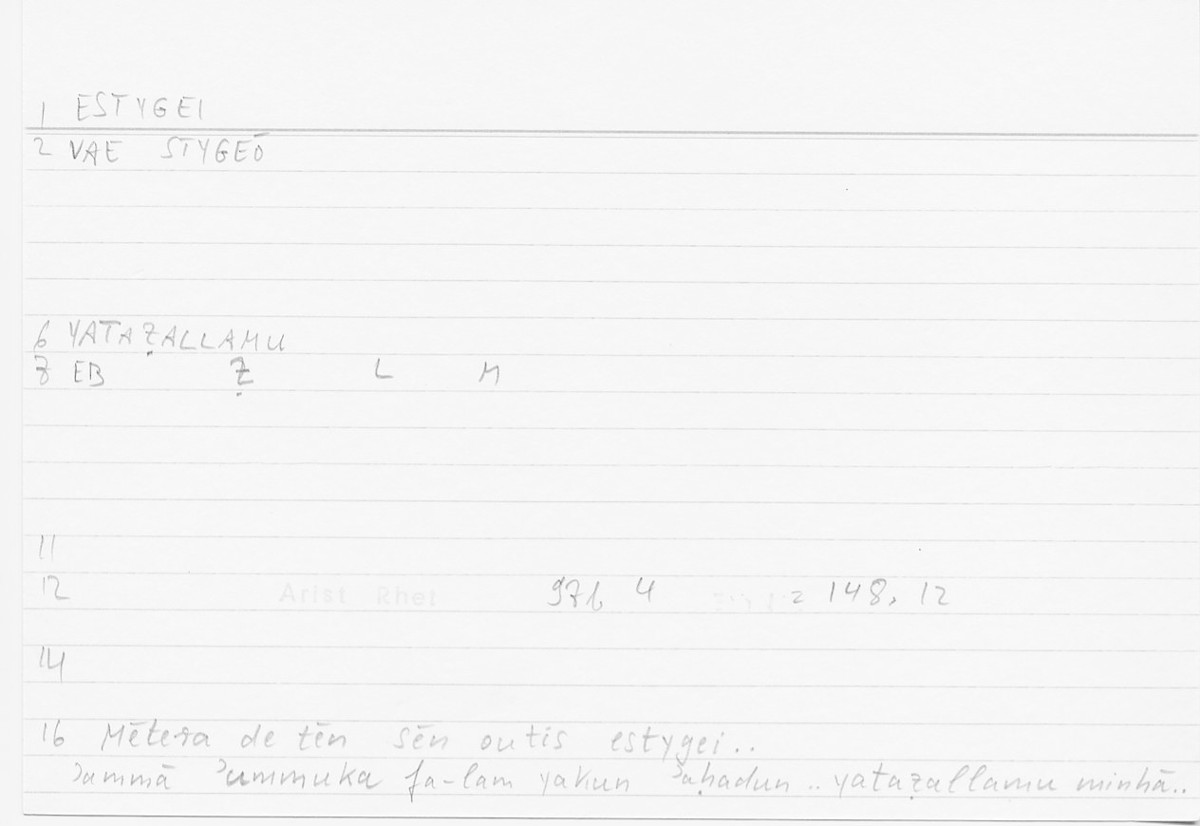 1 ESTYGEI
2 VAE STYGEŌ
6 YATAẒALLAMU
7 EB Ẓ L M
11
12 Arist Rhet 97b 4 = 148, 12
14
16 Mētera de tēn sēn outis estygei..
ʾammā ʾummuka fa-lam yakun ʾaḥadun .. yataẓallamu minhā..